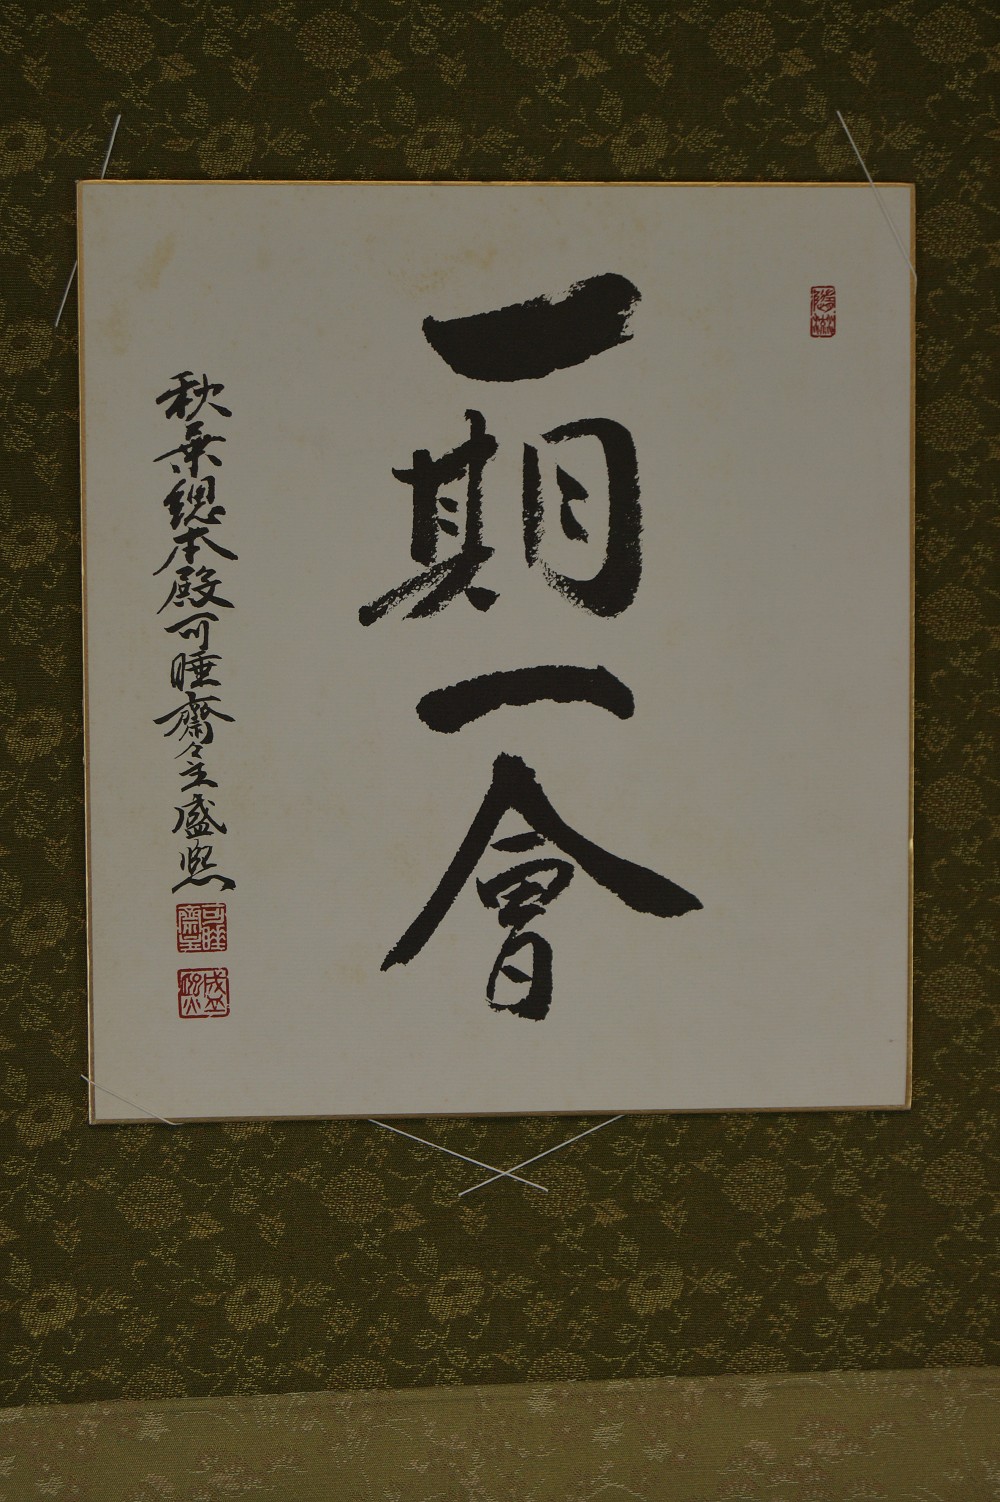 一期一會
秋葉總本殿可睡齋々主盛熙
可睡
齋主
盛
熙